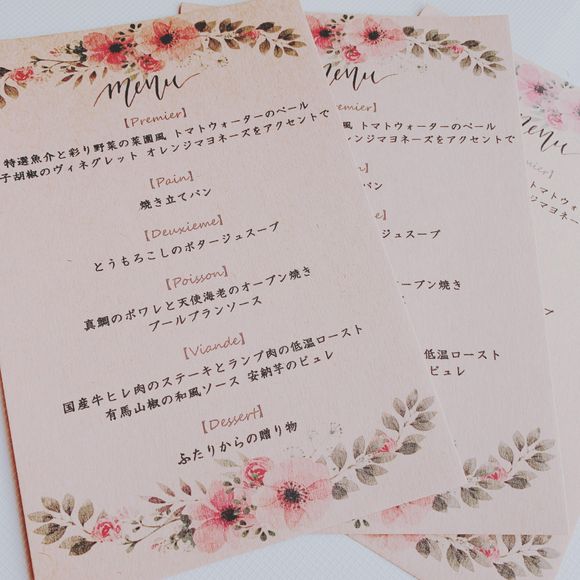 menu
【Premier】
特選魚介と彩り野菜の菜園風 トマトウォーターのベール
子胡椒のヴィネグレット オレンジマヨネーズをアクセントで
【Pain】
焼き立てパン
【Deuxieme】
とうもろこしのポタージュスープ
【Poisson】
真鯛のポワレと天使海老のオーブン焼き
ブールブランソース
【Viande】
国産牛ヒレ肉のステーキとランプ肉の低温ロースト
有馬山椒の和風ソース 安納芋のピュレ
【Dessert】
ふたりからの贈り物
menu
emier】
風 トマトウォーターのベール
レンジマヨネーズをアクセントで
】
ン
e】
ジュスープ
ーブン焼き
低温ロースト
ピュレ
menu
トマトウォ
マヨネーズ